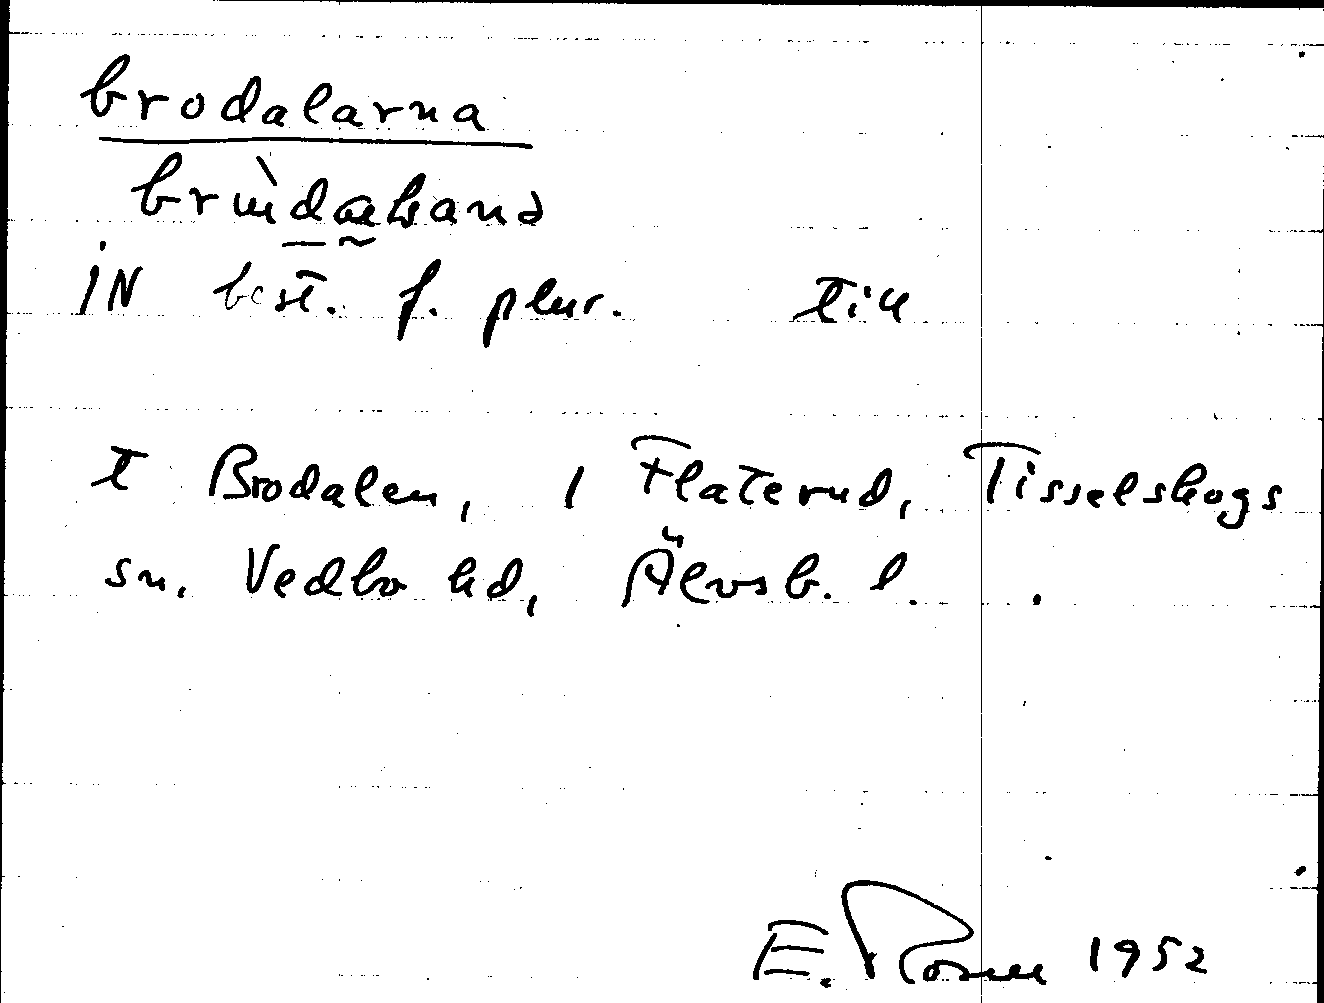 brodalarna
IN best. f. plur. till
t Brodalen, 1 Flaterud, Tisselskogs
sn. Vedbo hd, Älvsb. l.
E. 1952